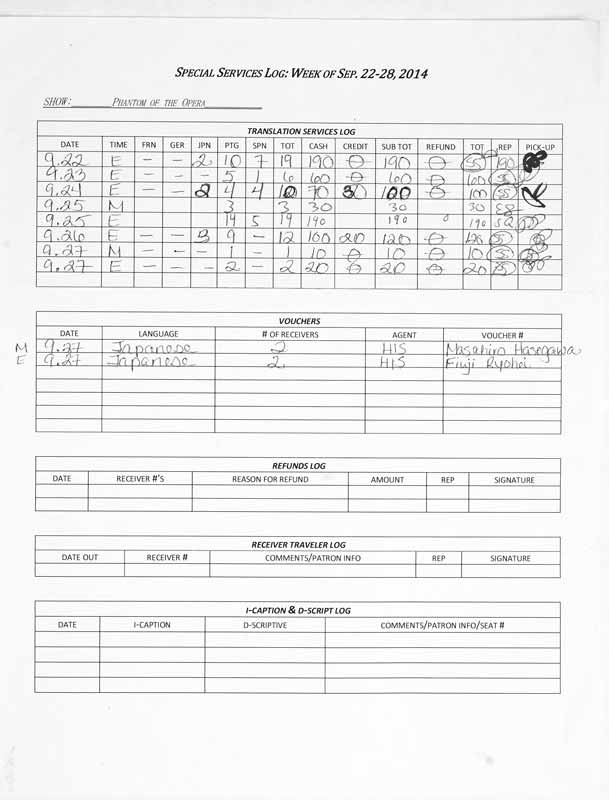 SPECIAL SERVICES LOG: WEEK OF SEP. 22-28, 2014
SHOW: PHANTOM OF THE OPERA
TRANSLATION SERVICES LOG
DATE TIME FRN GER JPN PTG SPN TOT CASH CREDIT SUB TOT REFUND TOT REP PICK-UP
9.22 E - - 2 10 7 19 190 0 190 0 SS 190
9.23 E - - - 5 1 6 60 0 60 0 60 SS
9.24 E - - 2 4 4 10 70 30 100 0 100 SS R
9.25 M 3 3 30 30 30 SQ
9.25 E 14 5 19 190 190 0 190 SQ
9.26 E - - 3 9 - 12 100 20 120 0 120 SS
9.27 M - - - 1 - 1 10 0 10 0 10 SS
9.27 E - - - 2 - 2 20 0 20 0 20 SS
VOUCHERS
DATE LANGUAGE # OF RECEIVERS AGENT VOUCHER #
M 9.27 Japanese 2 HIS Masahiro Hasegawa
E 9.27 Japanese 2 HIS Fiuji Ryohei
REFUNDS LOG
DATE RECEIVER #'S REASON FOR REFUND AMOUNT REP SIGNATURE
RECEIVER TRAVELER LOG
DATE OUT RECEIVER # COMMENTS/PATRON INFO REP SIGNATURE
I-CAPTION & D-SCRIPT LOG
DATE I-CAPTION D-SCRIPTIVE COMMENTS/PATRON INFO/SEAT #